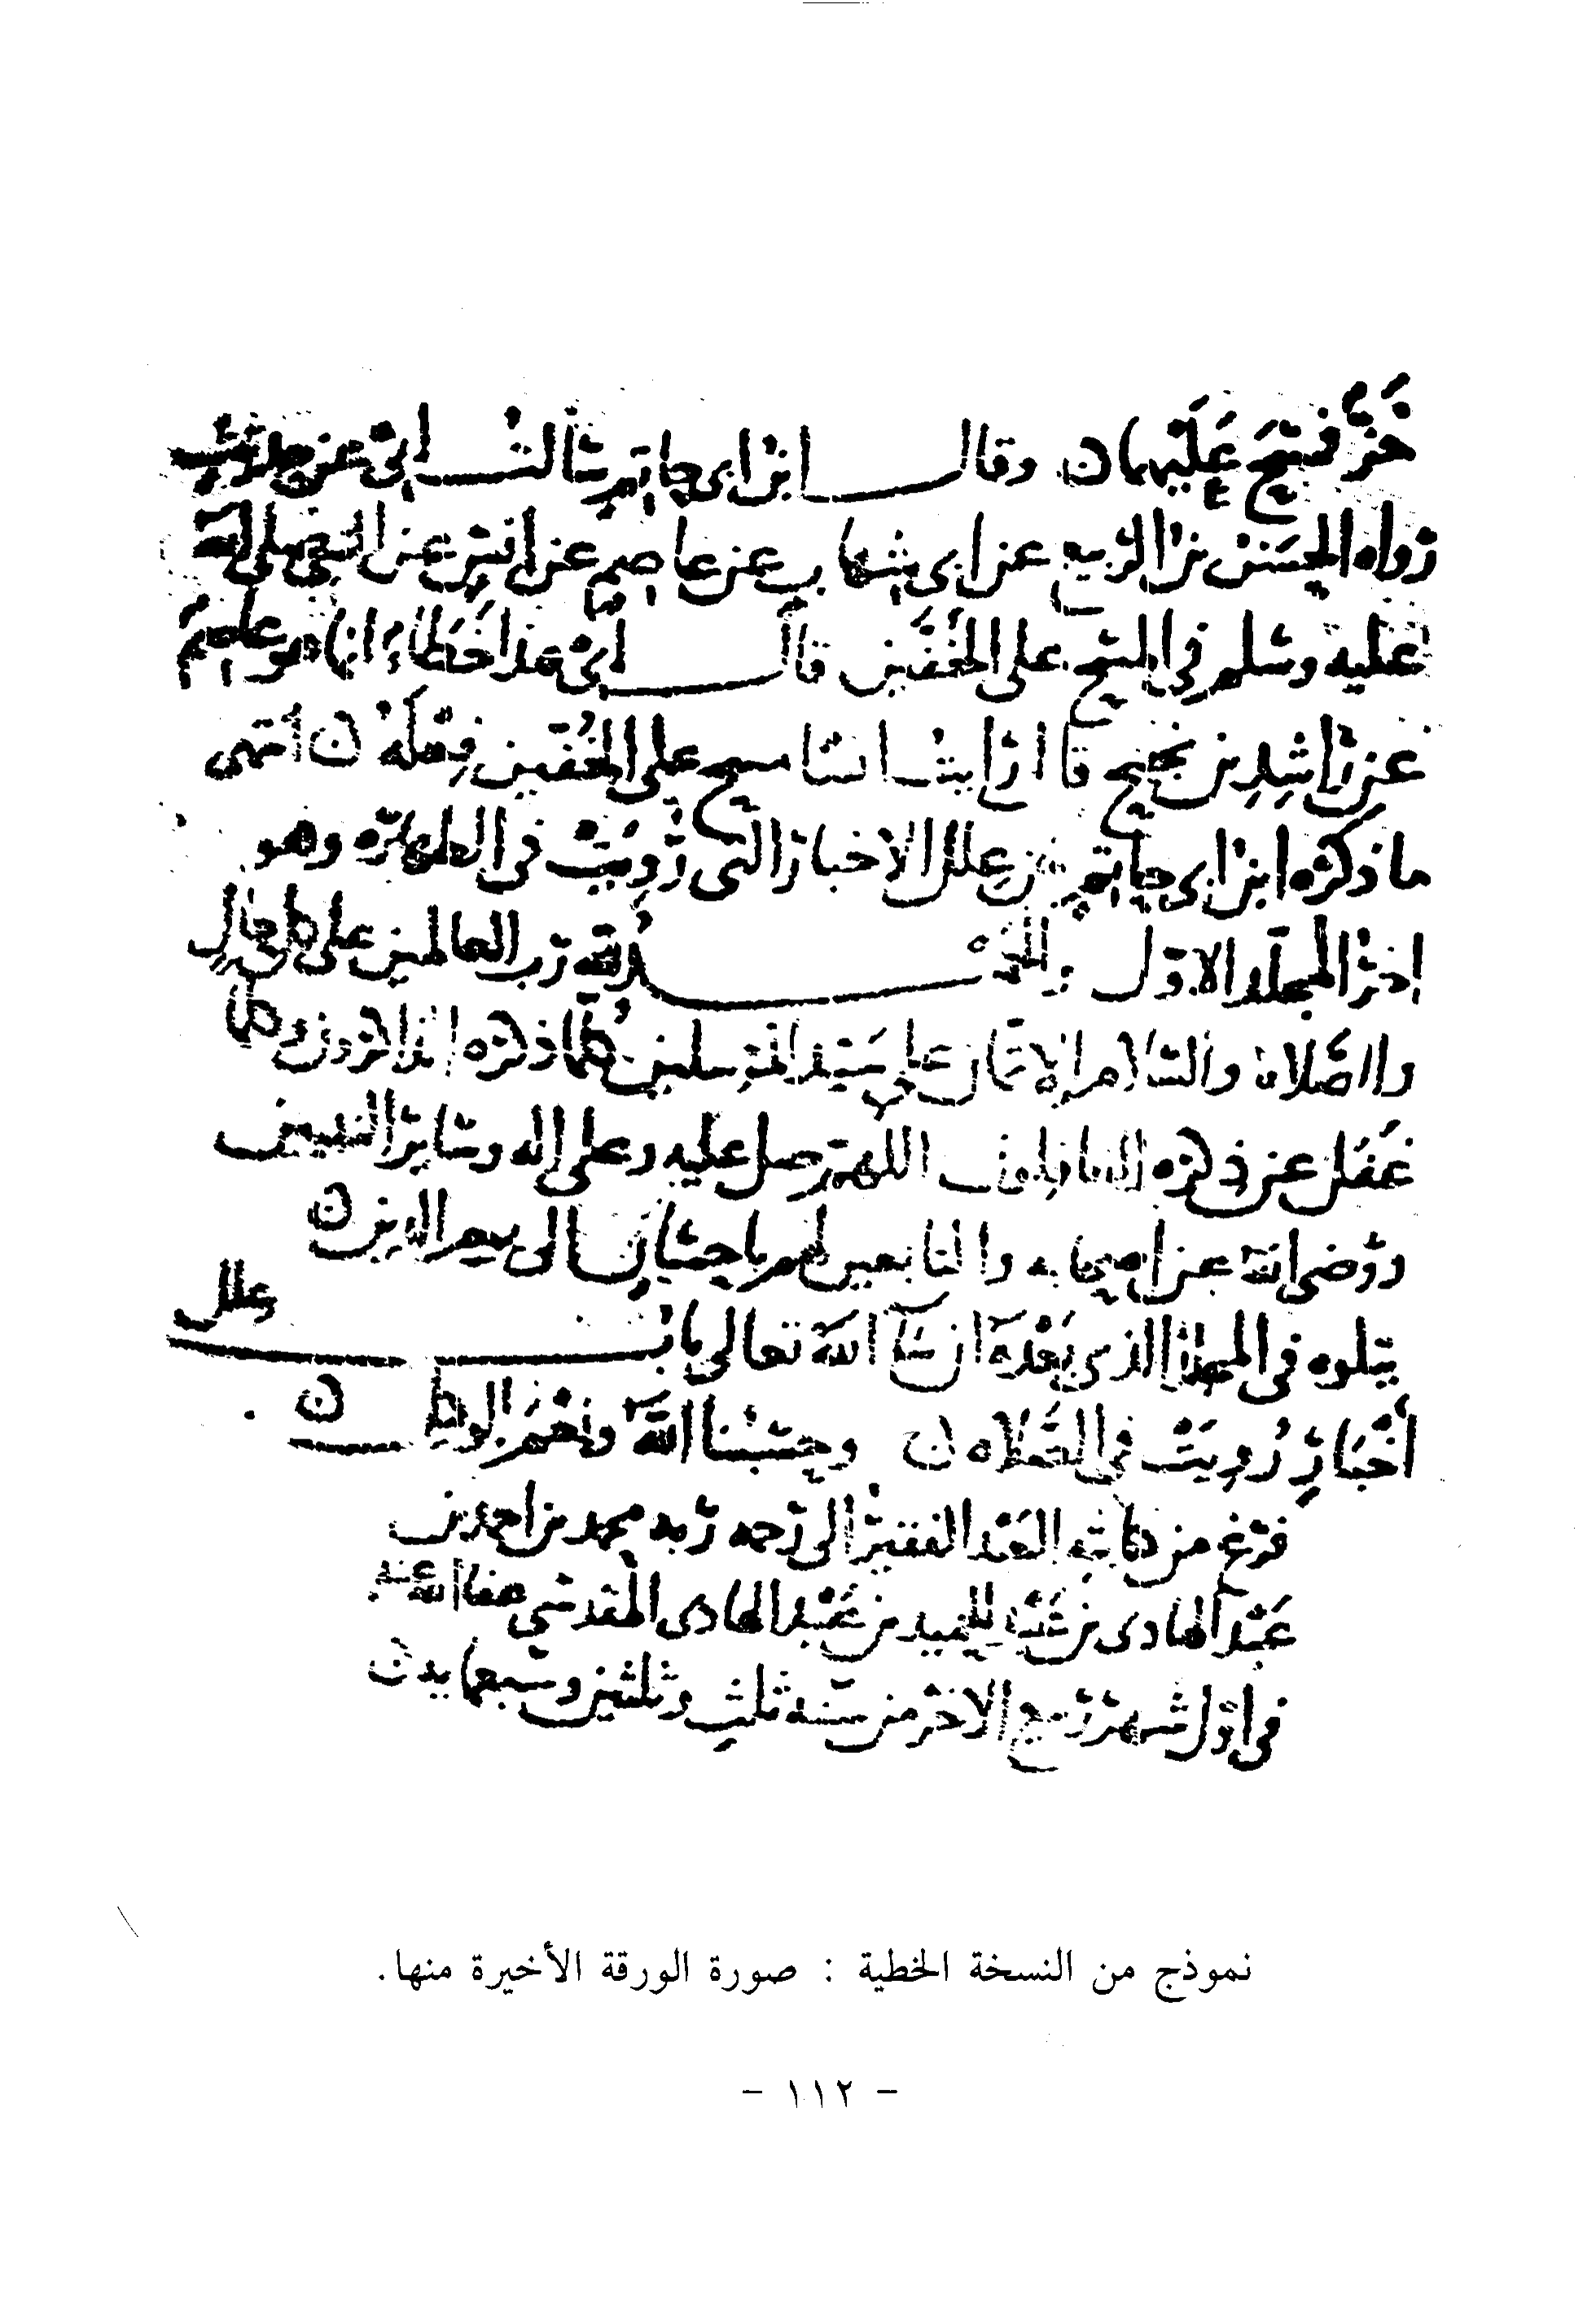 خز فمسح عليهما ن وقال ابن ابي حاتم سألت ابي عن حديث
رواه الحسن بن الربيع عن ابي شهاب عن عاصم عن انس عن النبي صلى الله
عليه وسلم في المسح على الخفين قال ابي هذا خطاء انما هو عاصم
عن راشد بن نجيح قال رايت انسا مسح على الخفين فعله ن انتهى
ما ذكره ابن ابي حاتم من علل الاخبار التي رويت في الطهارة وهو
اخر المجلد الاول والحمد لله رب العالمين على كل حال
والصلاة والسلام الاتمان على سيد المرسلين كلما ذكره الذاكرون وكلما
غفل عن ذكره الغافلون اللهم صل عليه وعلى اله وسائر النبيين
ورضى الله عن اصحابه والتابعين لهم باحسان الى يوم الدين ن
يتلوه في المجلد الذي بعده ان شآ الله تعالى باب علل
أخبار رويت في الصلاه ن وحسبنا الله ونعم الوكيل ن
فرغ من كتابته العبد الفقير الى رحمه ربه محمد بن احمد بن
عبد الهادى بن عبد الحميد بن عبد الهادى المقدسي عفا الله عنه
في اول شهر ربيع الاخر من سنة ثلث وثلثين وسبعمايه ن
نموذج من النسخة الخطية : صورة الورقة الأخيرة منها.
- ١١٢ -